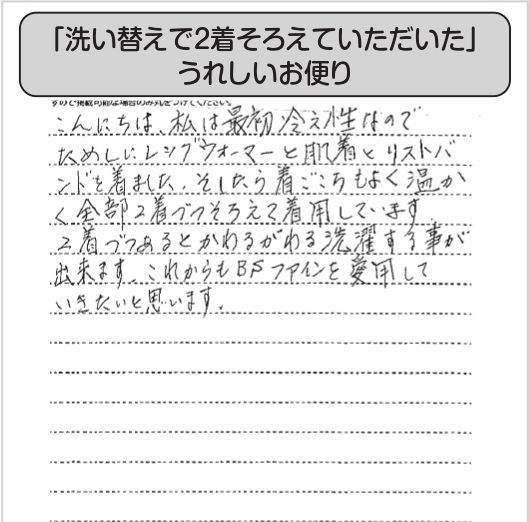 「洗い替えで2着そろえていただいた」
うれしいお便り
すので掲載可能な場合のみ丸をつけてください。
こんにちは、私は最初冷え性なので
ためしにレッグウォーマーと肌着とリストバ
ンドを着ました。そしたら着ごこちもよく温か
く全部2着づつそろえて着用しています。
2着づつあるとかわるがわる洗濯する事が
出来ます。これからもBSファインを愛用して
いきたいと思います。